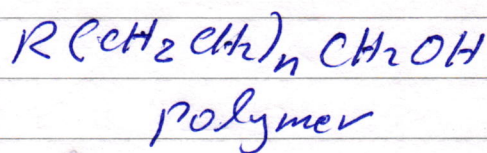 R(CH₂CH₂)ₙCH₂OH
polymer